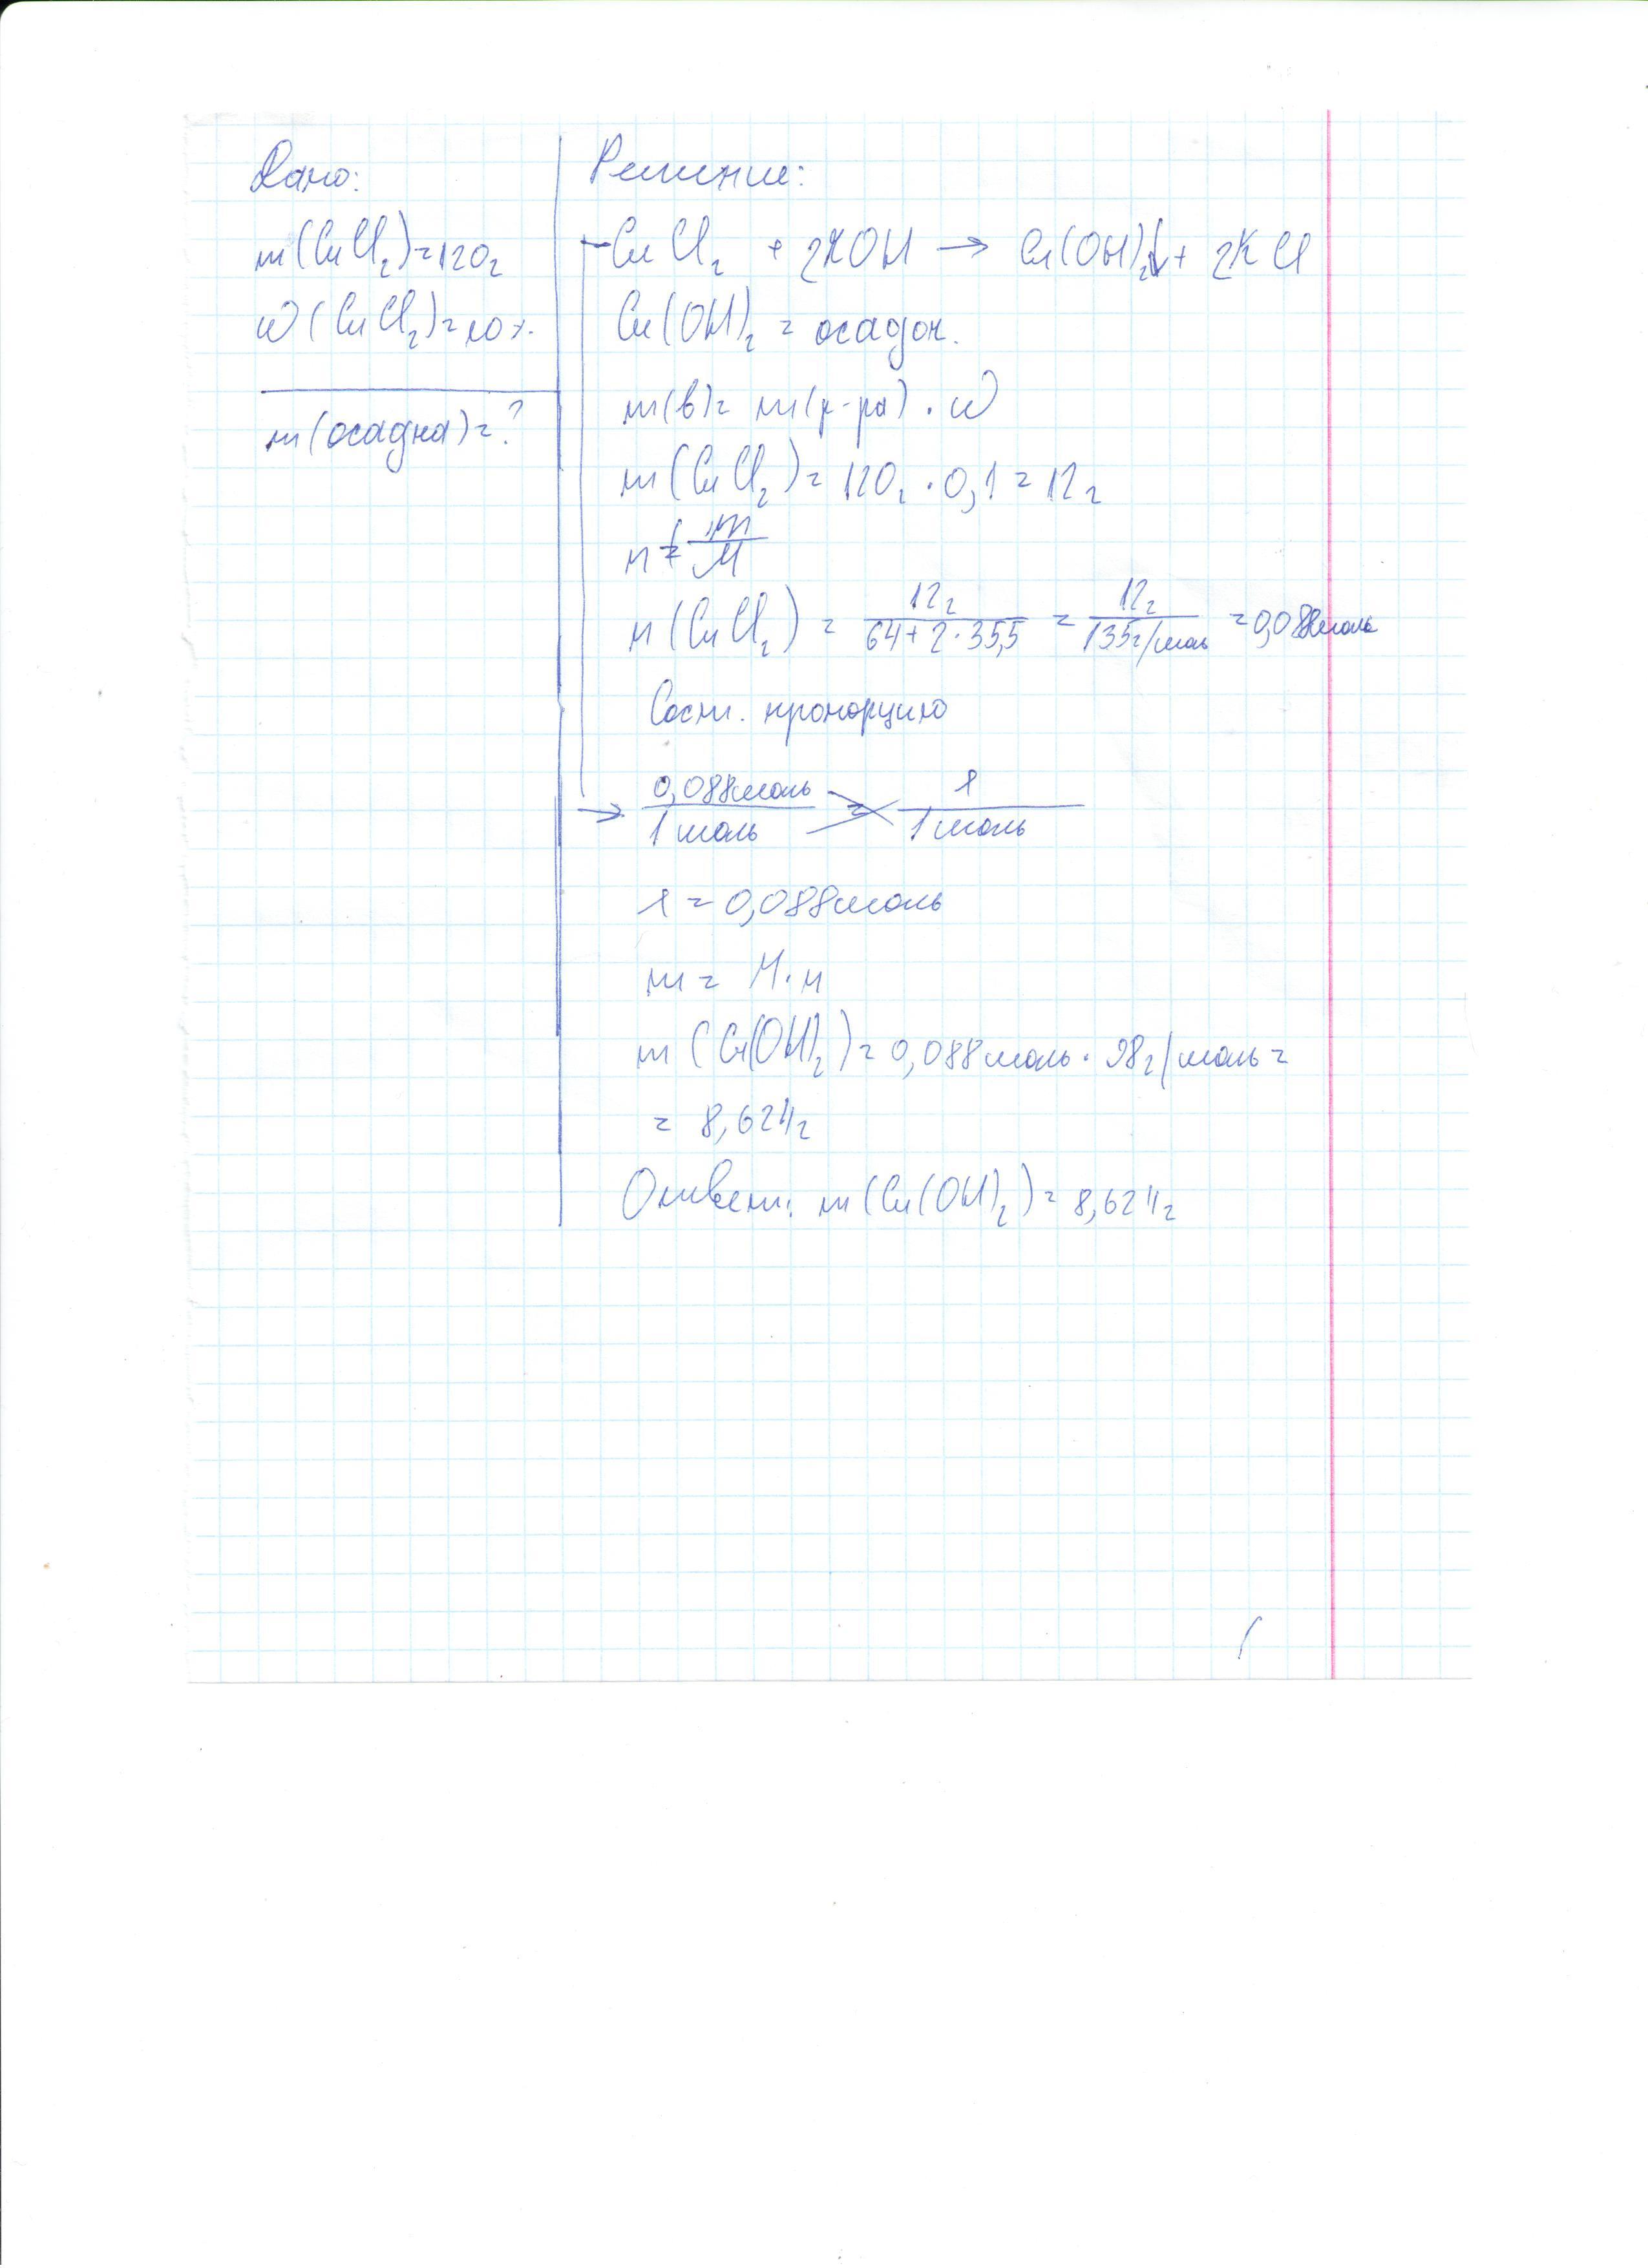 Дано:
m(CuCl₂)=120г
ω(CuCl₂)=10%
m(осадка)=?
Решение:
CuCl₂ + 2KOH → Cu(OH)₂↓+ 2KCl
Cu(OH)₂ = осадок.
m(в)= m(р-ра) · ω
m(CuCl₂)= 120г · 0,1 = 12г
n = m/M
n(CuCl₂) = 12г/(64+2·35,5) = 12г/135г/моль = 0,088моль
Сост. пропорцию
0,088моль/1 моль = x/1 моль
x = 0,088моль
m = M·n
m (Cu(OH)₂)= 0,088моль · 98г/моль =
= 8,624г
Ответ: m(Cu(OH)₂)= 8,624г